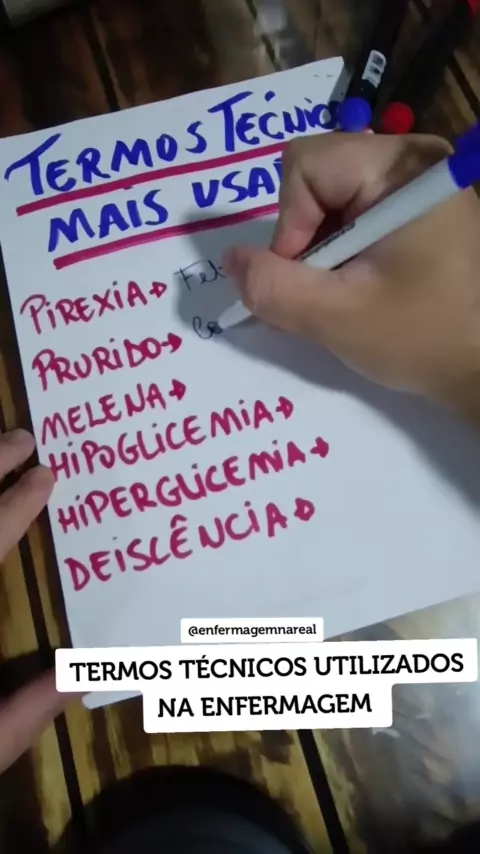 TERMOS TÉCNIC
MAIS USA
PIREXIA→ Feb
PRURIDO→ Co
MELENA→
HIPOGLICEMIA→
HIPERGLICEMIA→
DEISCÊNCIA→
@enfermagemnareal
TERMOS TÉCNICOS UTILIZADOS
NA ENFERMAGEM